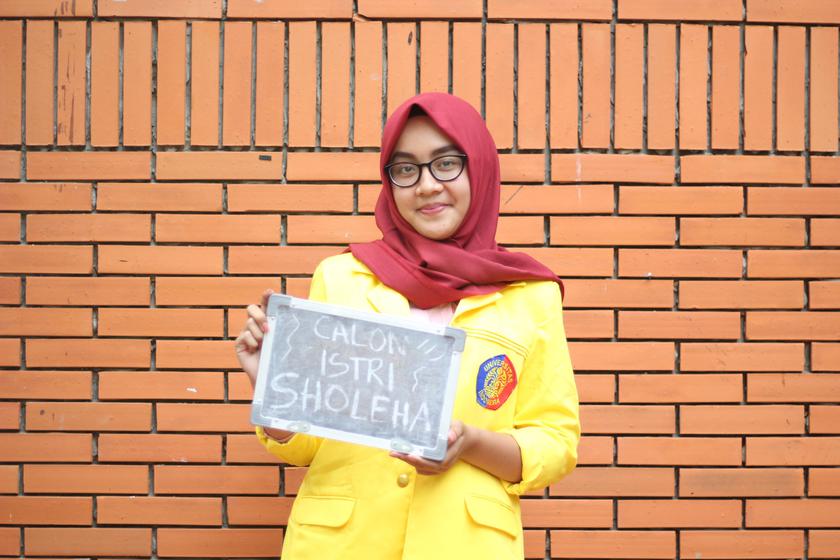 CALON
ISTRI
SHOLEHA
UNIVERSITAS
INDONESIA